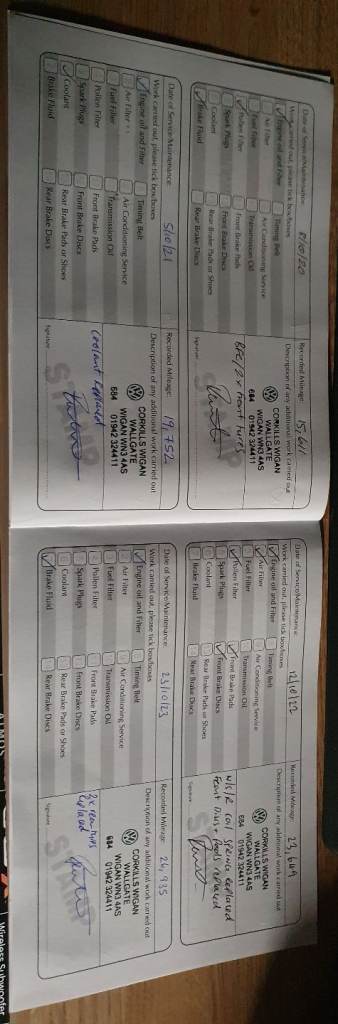 Date of Service/Maintenance: 8/10/20
Recorded Mileage: 15,611
Work carried out, please tick box/boxes
Description of any additional work carried out
Engine oil and Filter
Timing Belt
Air Filter
Air Conditioning Service
Fuel Filter
Transmission Oil
Pollen Filter
Front Brake Pads
Spark Plugs
Front Brake Discs
Coolant
Rear Brake Pads or Shoes
Brake Fluid
Rear Brake Discs
CORKILLS WIGAN
WALLGATE
WIGAN WN3 4AS
684 01942 324411
2x front tyres
Signature:
STAMP
Date of Service/Maintenance: 5/10/21
Recorded Mileage: 19,752
Work carried out, please tick box/boxes
Description of any additional work carried out
Engine oil and Filter
Timing Belt
Air Filter
Air Conditioning Service
Fuel Filter
Transmission Oil
Pollen Filter
Front Brake Pads
Spark Plugs
Front Brake Discs
Coolant
Rear Brake Pads or Shoes
Brake Fluid
Rear Brake Discs
CORKILLS WIGAN
WALLGATE
WIGAN WN3 4AS
684 01942 324411
Coolant replaced
Signature:
STAMP
Date of Service/Maintenance: 12/10/22
Recorded Mileage: 23,649
Work carried out, please tick box/boxes
Description of any additional work carried out
Engine oil and Filter
Timing Belt
Air Filter
Air Conditioning Service
Fuel Filter
Transmission Oil
Pollen Filter
Front Brake Pads
Spark Plugs
Front Brake Discs
Coolant
Rear Brake Pads or Shoes
Brake Fluid
Rear Brake Discs
CORKILLS WIGAN
WALLGATE
WIGAN WN3 4AS
684 01942 324411
N/S/R coil spring replaced
Front Discs + Pads replaced
Signature:
Date of Service/Maintenance: 23/10/23
Recorded Mileage: 26,935
Work carried out, please tick box/boxes
Description of any additional work carried out
Engine oil and Filter
Timing Belt
Air Filter
Air Conditioning Service
Fuel Filter
Transmission Oil
Pollen Filter
Front Brake Pads
Spark Plugs
Front Brake Discs
Coolant
Rear Brake Pads or Shoes
Brake Fluid
Rear Brake Discs
CORKILLS WIGAN
WALLGATE
WIGAN WN3 4AS
684 01942 324411
2x rear tyres
replaced
Signature:
STAMP
Wireless Subwoofer